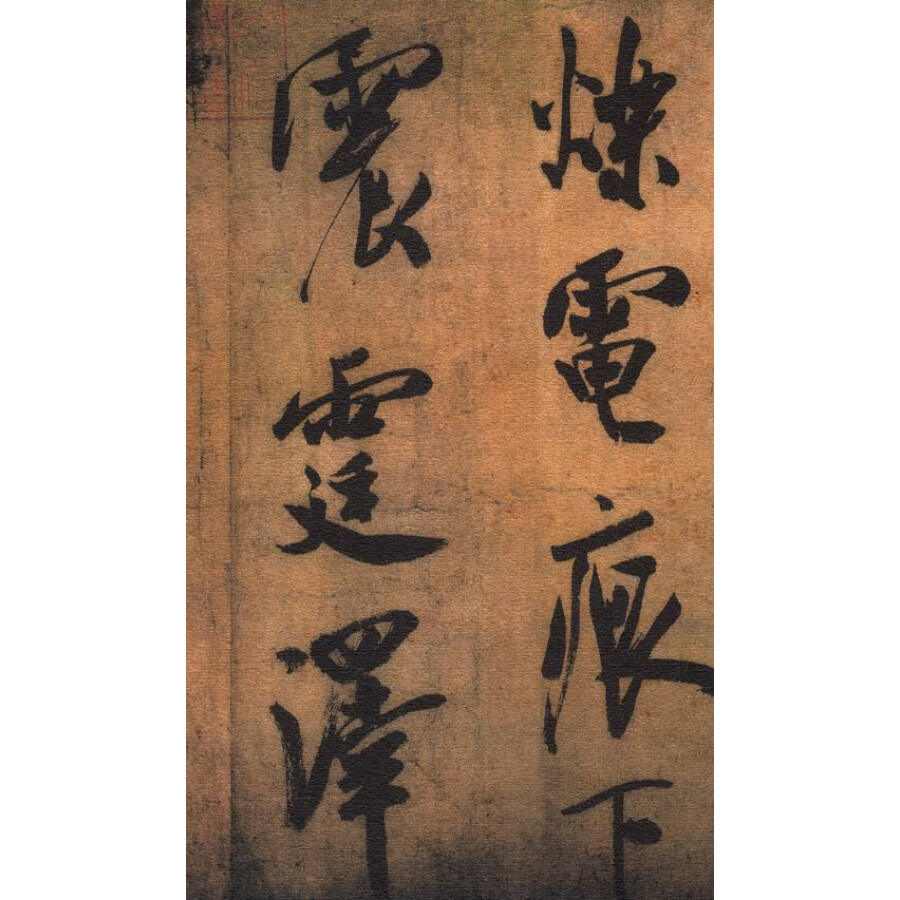 爍電痕下
震霆澤